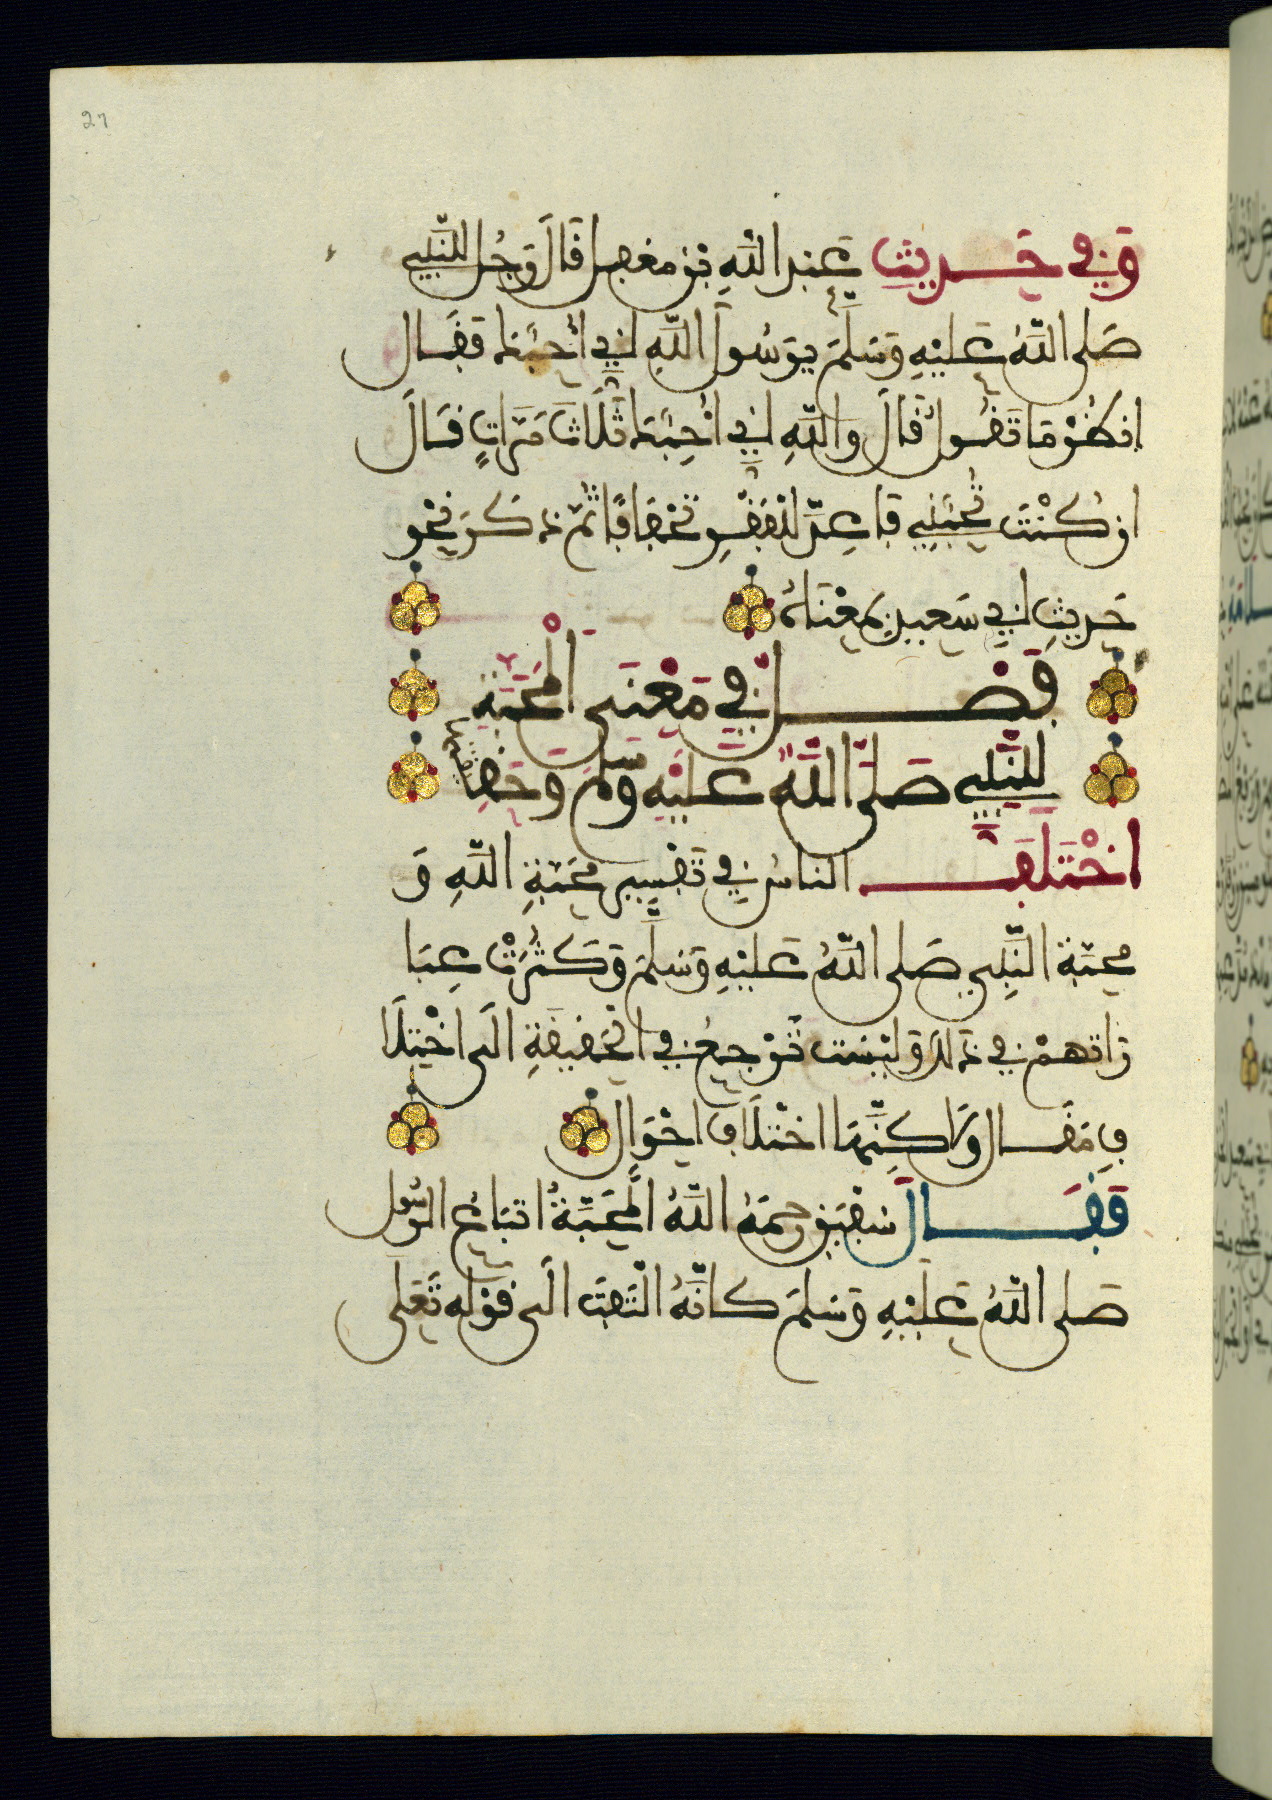 27
وَفِي حَدِيثِ عَبْدِ اللَّهِ بْنِ مُغَفَّلٍ قَالَ رَجُلٌ لِلنَّبِيِّ
صَلَّى اللَّهُ عَلَيْهِ وَسَلَّمَ يَرَسُولَ اللَّهِ إِنِّي أُحِبُّكَ فَقَالَ
انظُرْ مَا تَقُولُ قَالَ وَاللَّهِ إِنِّي أُحِبُّكَ ثَلَاثَ مَرَّاتٍ قَالَ
إِن كُنْتَ تُحِبُّنِي فَأَعِدَّ لِلْفَقْرِ تِجْفَافًا ثُمَّ ذَكَرَ نَحْوَ
حَدِيثِ أَبِي سَعِيدٍ بِمَعْنَاهُ
فَصْلٌ فِي مَعْنَى الْمَحَبَّةِ
لِلنَّبِيِّ صَلَّى اللَّهُ عَلَيْهِ وَسَلَّمَ وَحَقِيقَتِهَا
اخْتَلَفَ النَّاسُ فِي تَفْسِيرِ مَحَبَّةِ اللَّهِ وَ
مَحَبَّةِ النَّبِيِّ صَلَّى اللَّهُ عَلَيْهِ وَسَلَّمَ وَكَثُرَتْ عِبَا
رَاتُهُمْ فِي ذَلِكَ وَلَيْسَتْ تَرْجِعُ فِي الْحَقِيقَةِ إِلَى اخْتِلَا
فِ مَقَالٍ وَلَكِنَّهَا اخْتِلَافُ أَحْوَالٍ
فَقَالَ سُفْيَنُ رَحِمَهُ اللَّهُ الْمَحَبَّةُ اتِّبَاعُ الرَّسُولِ
صَلَّى اللَّهُ عَلَيْهِ وَسَلَّمَ كَأَنَّهُ الْتَفَتَ إِلَى قَوْلِهِ تَعَلَى